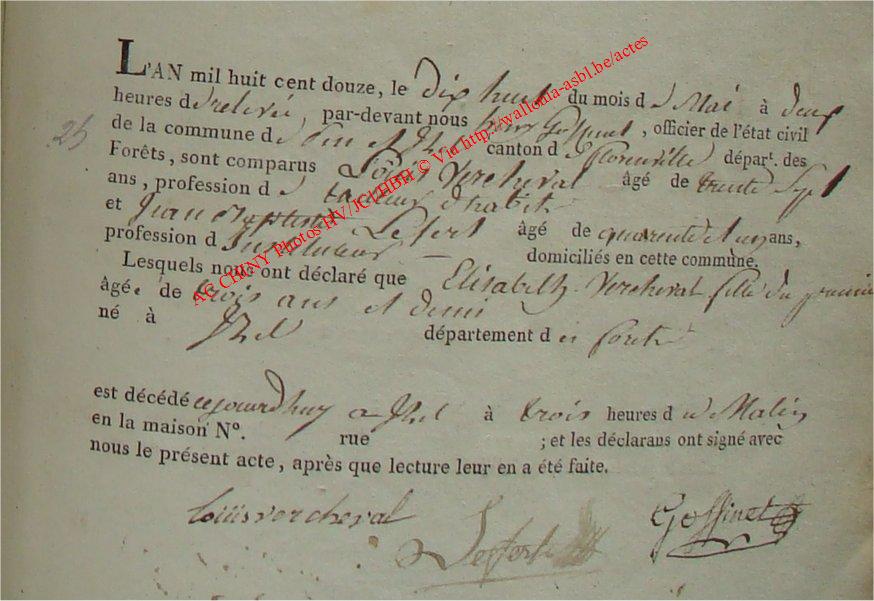 L'AN mil huit cent douze, le Dix huit du mois de Mai à deux
heures de relevée, par-devant nous Gossinet, officier de l'état civil
25
de la commune d et Izel canton de Florenville départ. des
Forêts, sont comparus Louis Vercheval âgé de trente Sept
ans, profession de tailleur d'habit
et Jean Baptiste Lefort âgé de quarente et un ans,
profession d instituteur domiciliés en cette commune.
Lesquels nous ont déclaré que Elisabeth Vercheval fille du premier
âgée de trois ans et demi
né à Izel département des forets
est décédé cejourdhuy a Izel à trois heures du Matin
en la maison N°. rue ; et les déclarans ont signé avec
nous le présent acte, après que lecture leur en a été faite.
louis vercheval
Lefort
Gossinet
AS CHINY Photos HV/JC/HBH © Via http://wallonia-asbl.be/actes